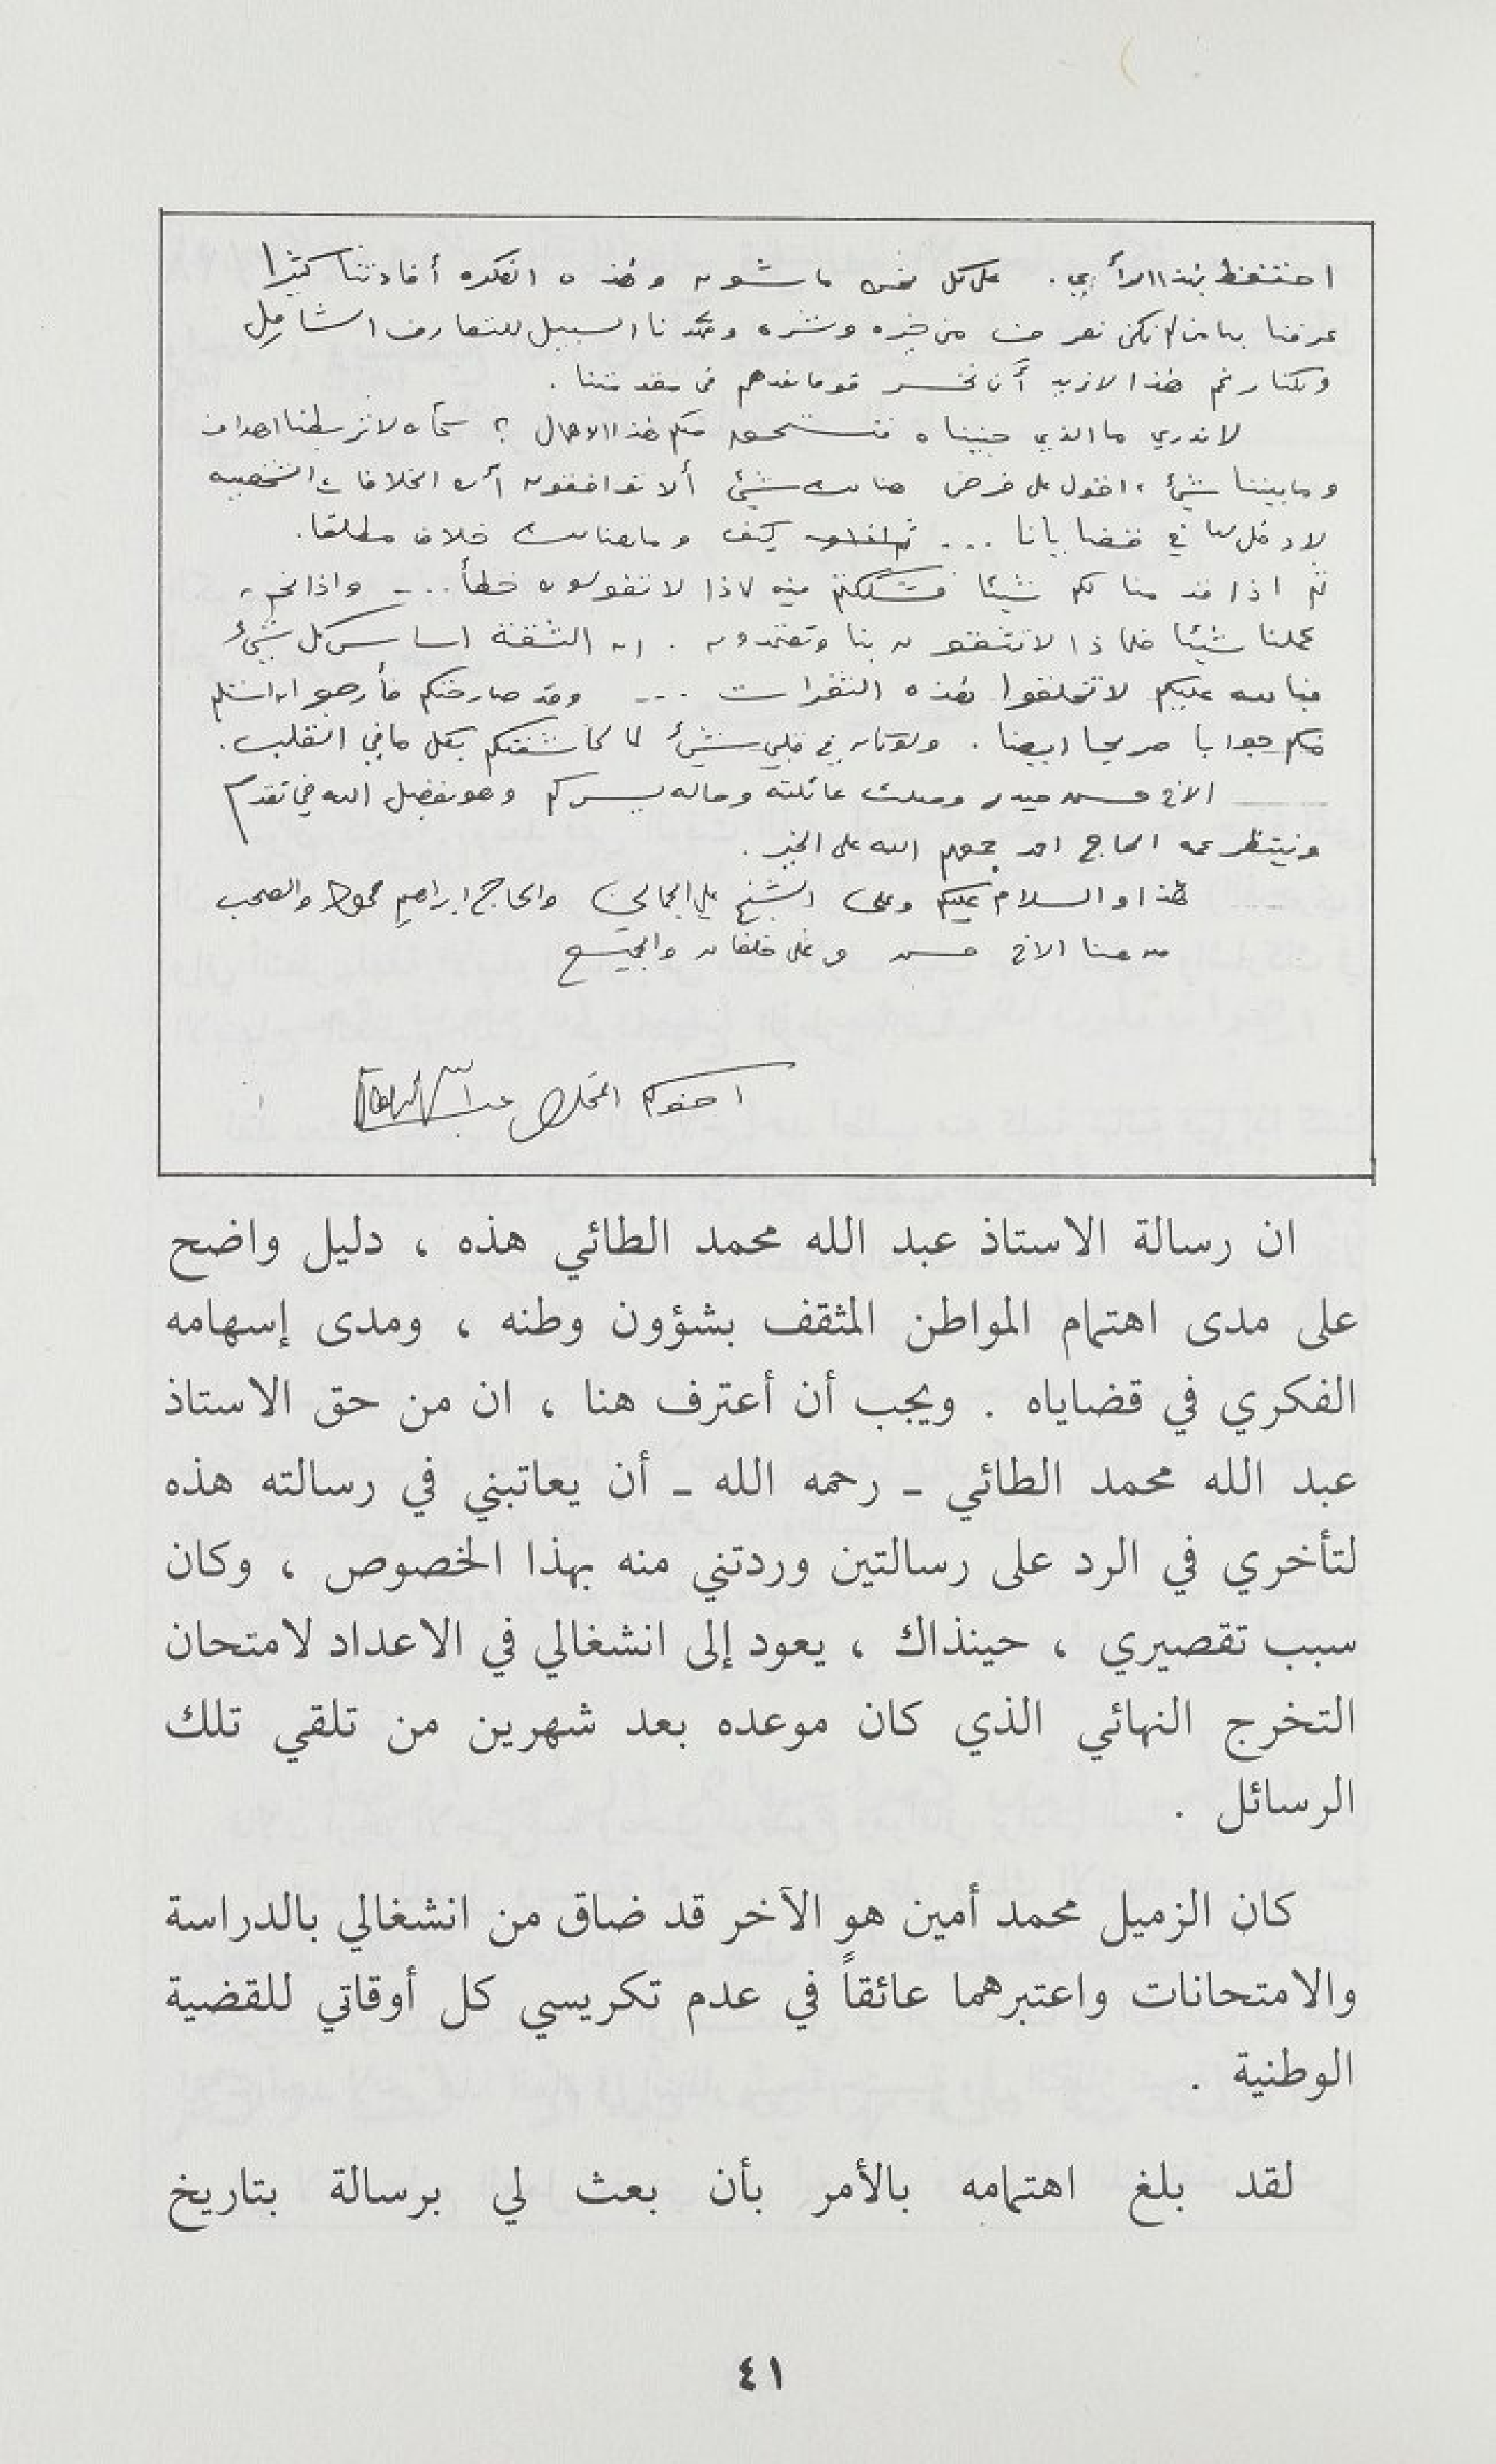 احتفظ بهذا الرأي . على كل نحن ماشون وهذه الفكرة أفادتنا كثيرا
عرفنا بها من لم نكن نعرف من خيره وشره ومهدنا السبيل للتعارف الشامل
ولكنا رغم هذا لا نريد أن نخسر قوما نعدهم في مقدمتنا .
لا ندري ما الذي جنيناه فنستحق منكم هذا الاهمال ؟ كأنه لا تربطنا اهداف
وما بيننا شيئ ، اقول على فرض هناك شيئ ألا توافقون أن الخلافات الشخصيه
لا دخل لها في قضايانا ... كيف وما هناك خلاف مطلقا .
ثم اذا قدمنا لكم شيئا فشككتم فيه لماذا لا تقولون خطأ ... واذا نحن
عملنا شيئا فلماذا لا تثقون بنا وتعتمدون . ان الثقة اساس كل شيئ
فبالله عليكم لا تخلقوا هذه الثغرات ... وقد صارحتكم فأرجو ان استلم
منكم جوابا صريحا ايضا . ولو كان في قلبي شيئ لما كاشفتكم بكل ما في القلب .
الاخ حسن حيدر وصلت عائلته وحاله يسركم وهو بفضل الله في تقدم
وينتظر عمه الحاج احمد جمعهم الله على الخير .
هذا والسلام عليكم وعلى الشيخ علي الجمالي والحاج ابراهيم محمود والصحب
من هنا الاخ حسن وعلى خلفان والجميع
اخوكم المخلص عبدالله الطائي
ان رسالة الاستاذ عبد الله محمد الطائي هذه ، دليل واضح
على مدى اهتمام المواطن المثقف بشؤون وطنه ، ومدى إسهامه
الفكري في قضاياه . ويجب أن أعترف هنا ، ان من حق الاستاذ
عبد الله محمد الطائي ــ رحمه الله ــ أن يعاتبني في رسالته هذه
لتأخري في الرد على رسالتين وردتني منه بهذا الخصوص ، وكان
سبب تقصيري ، حينذاك ، يعود إلى انشغالي في الاعداد لامتحان
التخرج النهائي الذي كان موعده بعد شهرين من تلقي تلك
الرسائل .
كان الزميل محمد أمين هو الآخر قد ضاق من انشغالي بالدراسة
والامتحانات واعتبرهما عائقاً في عدم تكريسي كل أوقاتي للقضية
الوطنية .
لقد بلغ اهتمامه بالأمر بأن بعث لي برسالة بتاريخ
٤١